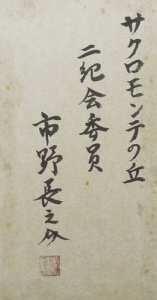 サクロモンテの丘
二紀会委員
市野長之介